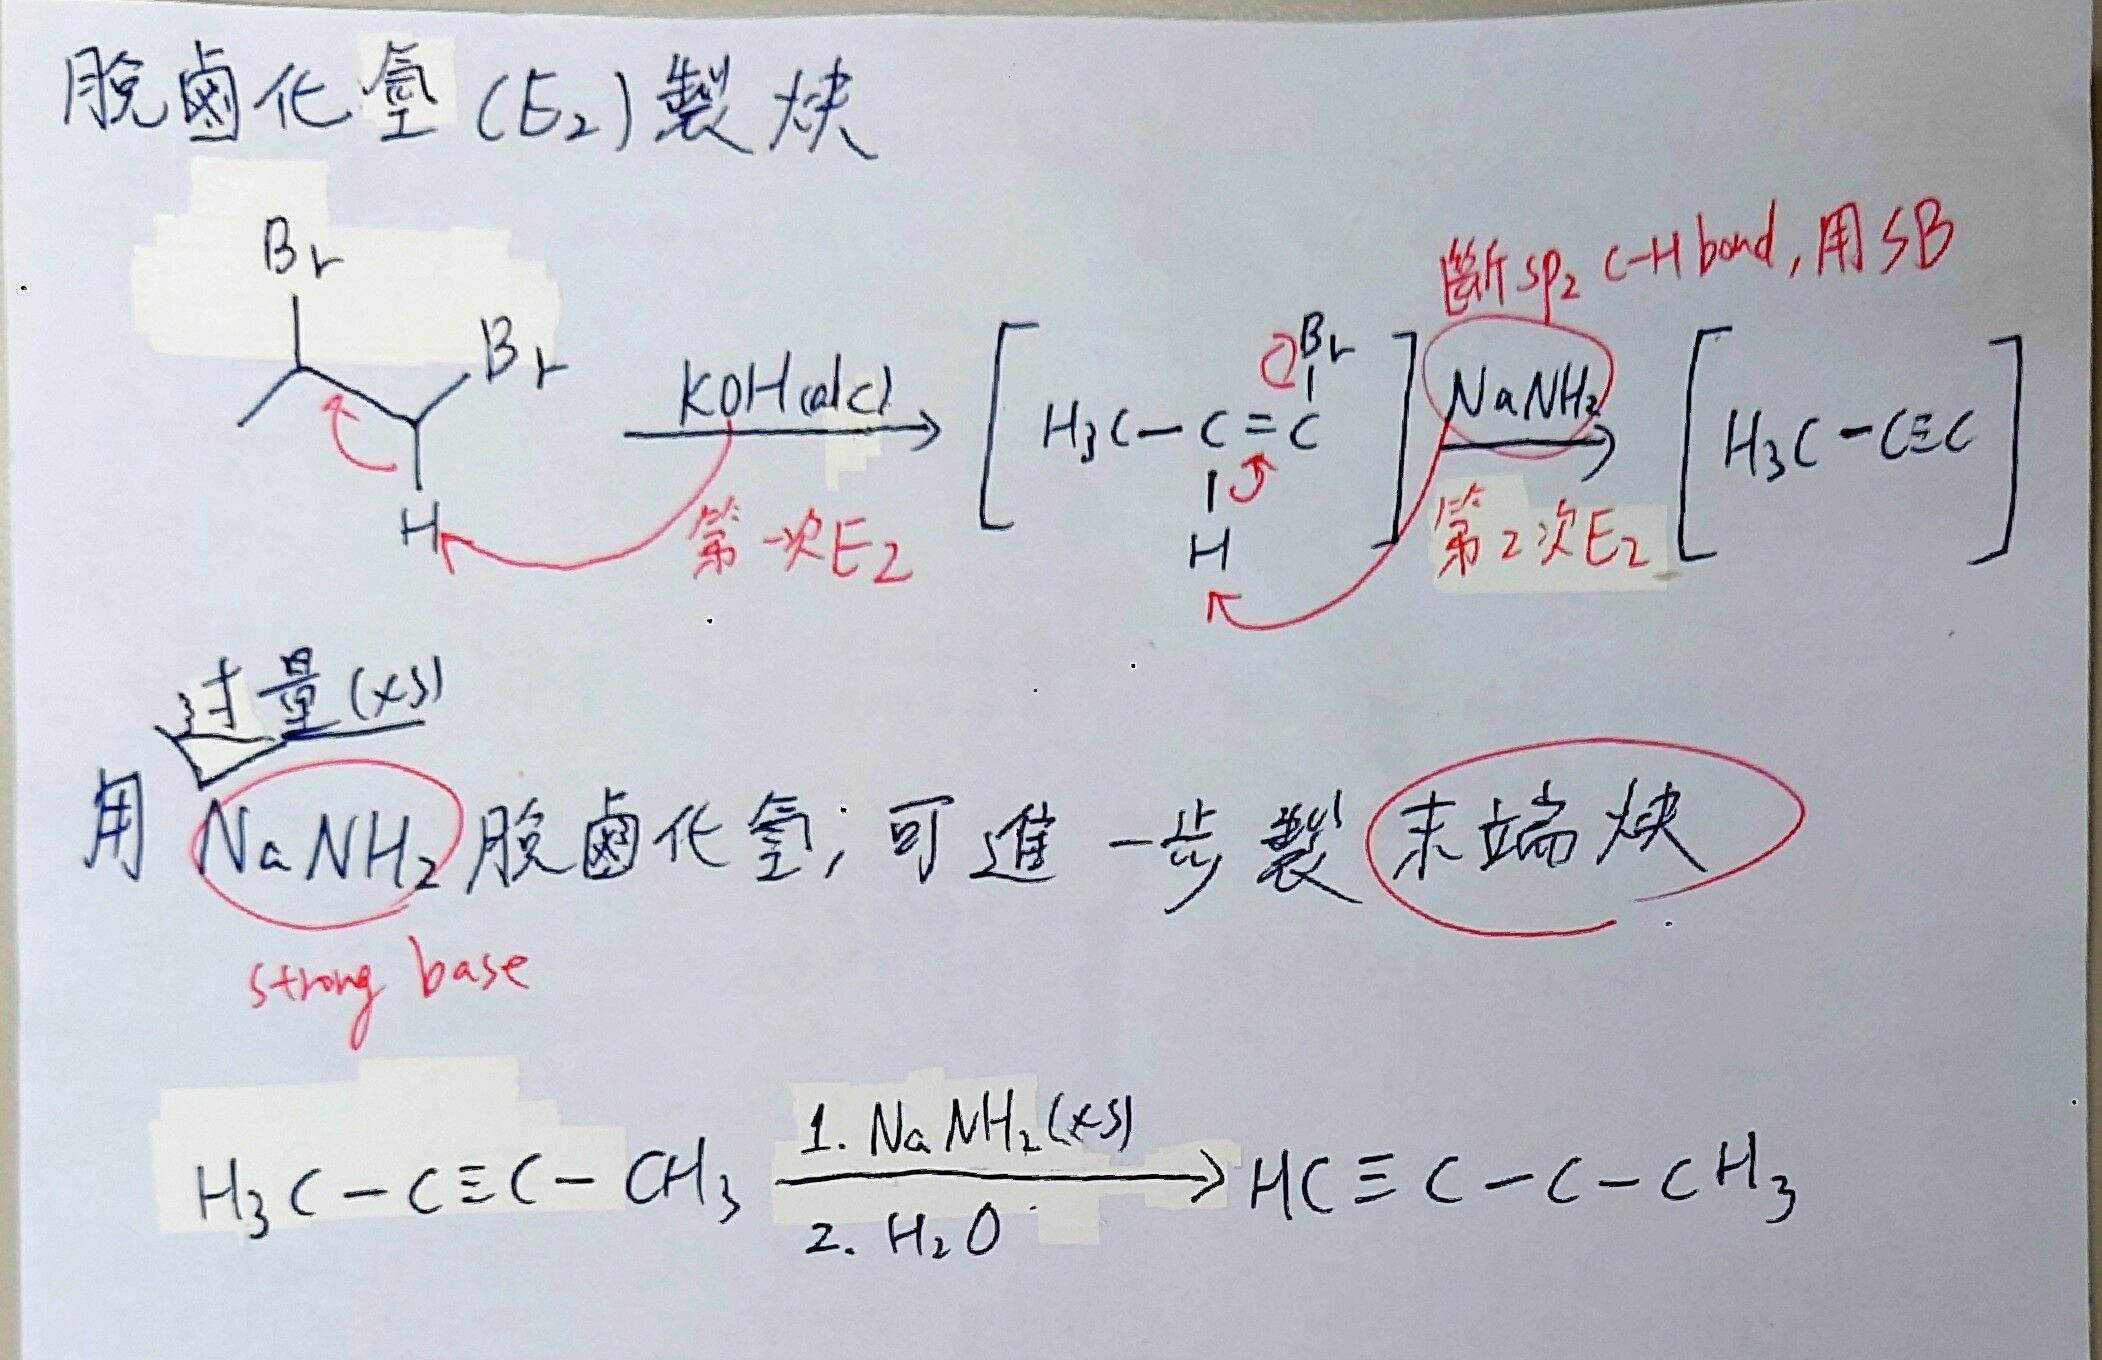 脫鹵化氫(E2)製炔
Br
Br
H
KOH(alc)
第一次E2
Br
H3C-C=C
H
斷sp2 C-H bond,用SB
NaNH2
第2次E2
H3C-C≡C
过量(xs)
用NaNH2脫鹵化氫;可進一步製末端炔
strong base
H3C-C≡C-CH3
1. NaNH2(xs)
2. H2O
HC≡C-C-CH3